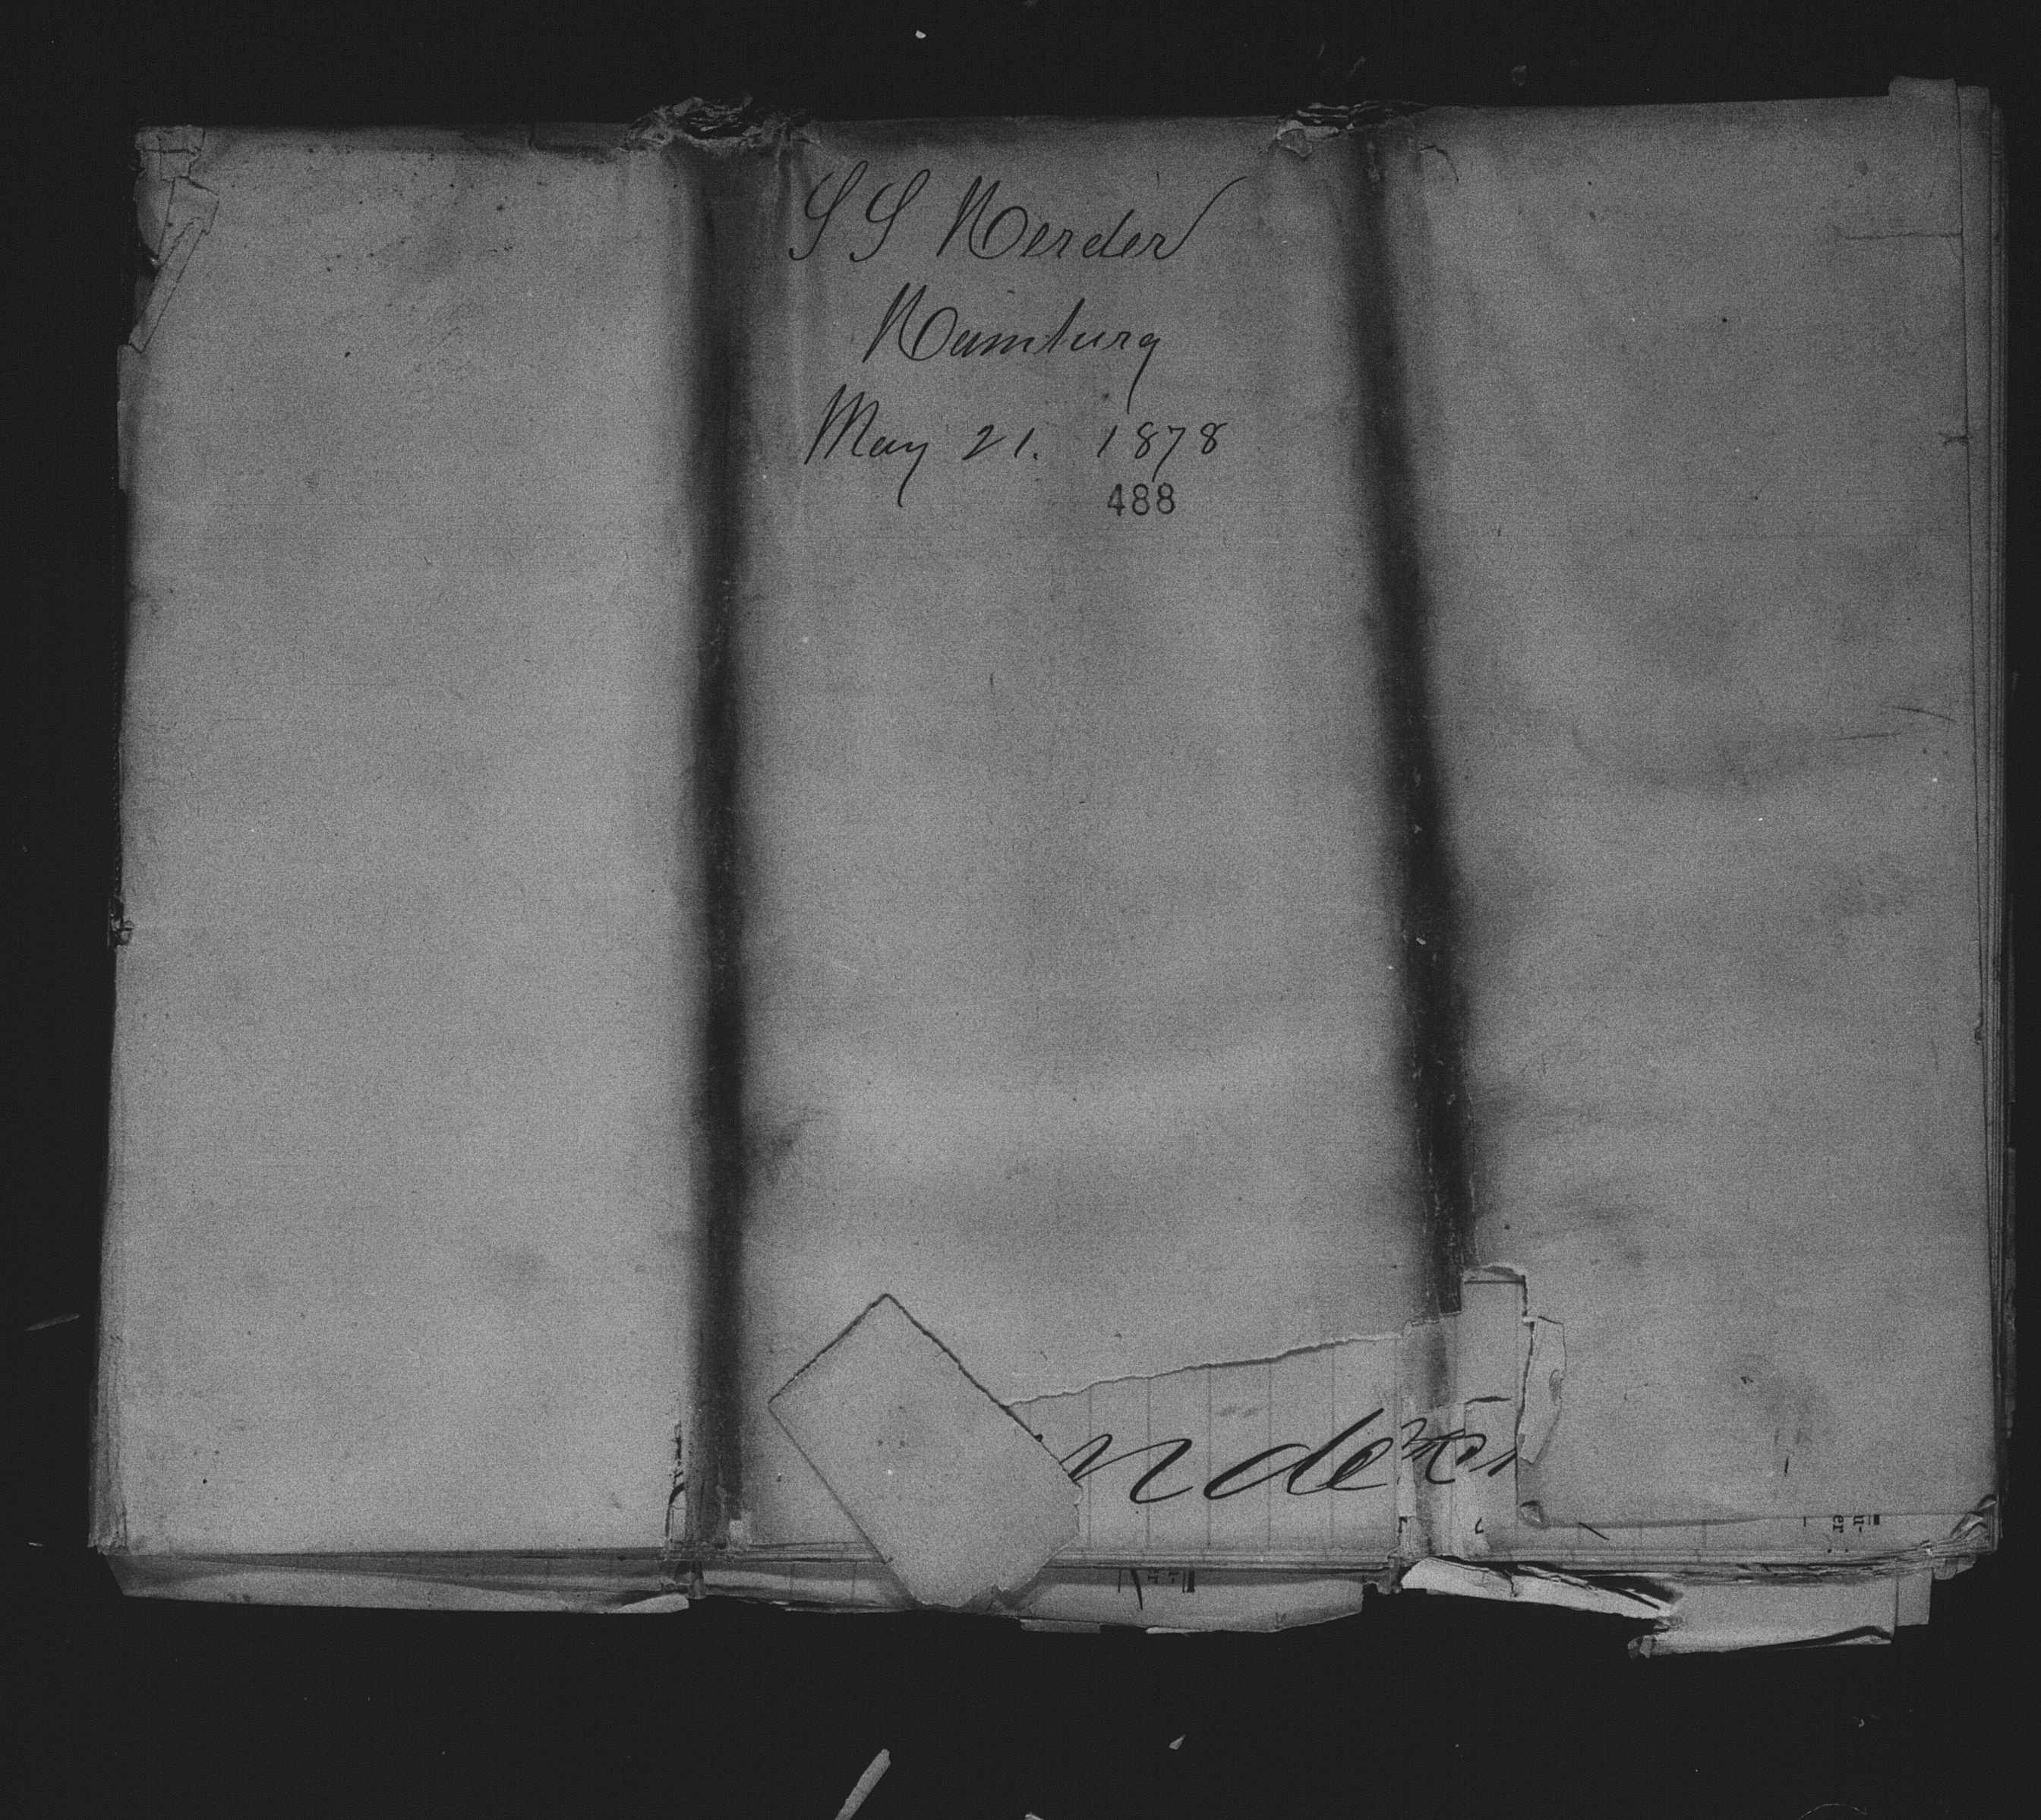 S S Herder
Hamburg
May 21. 1878
488